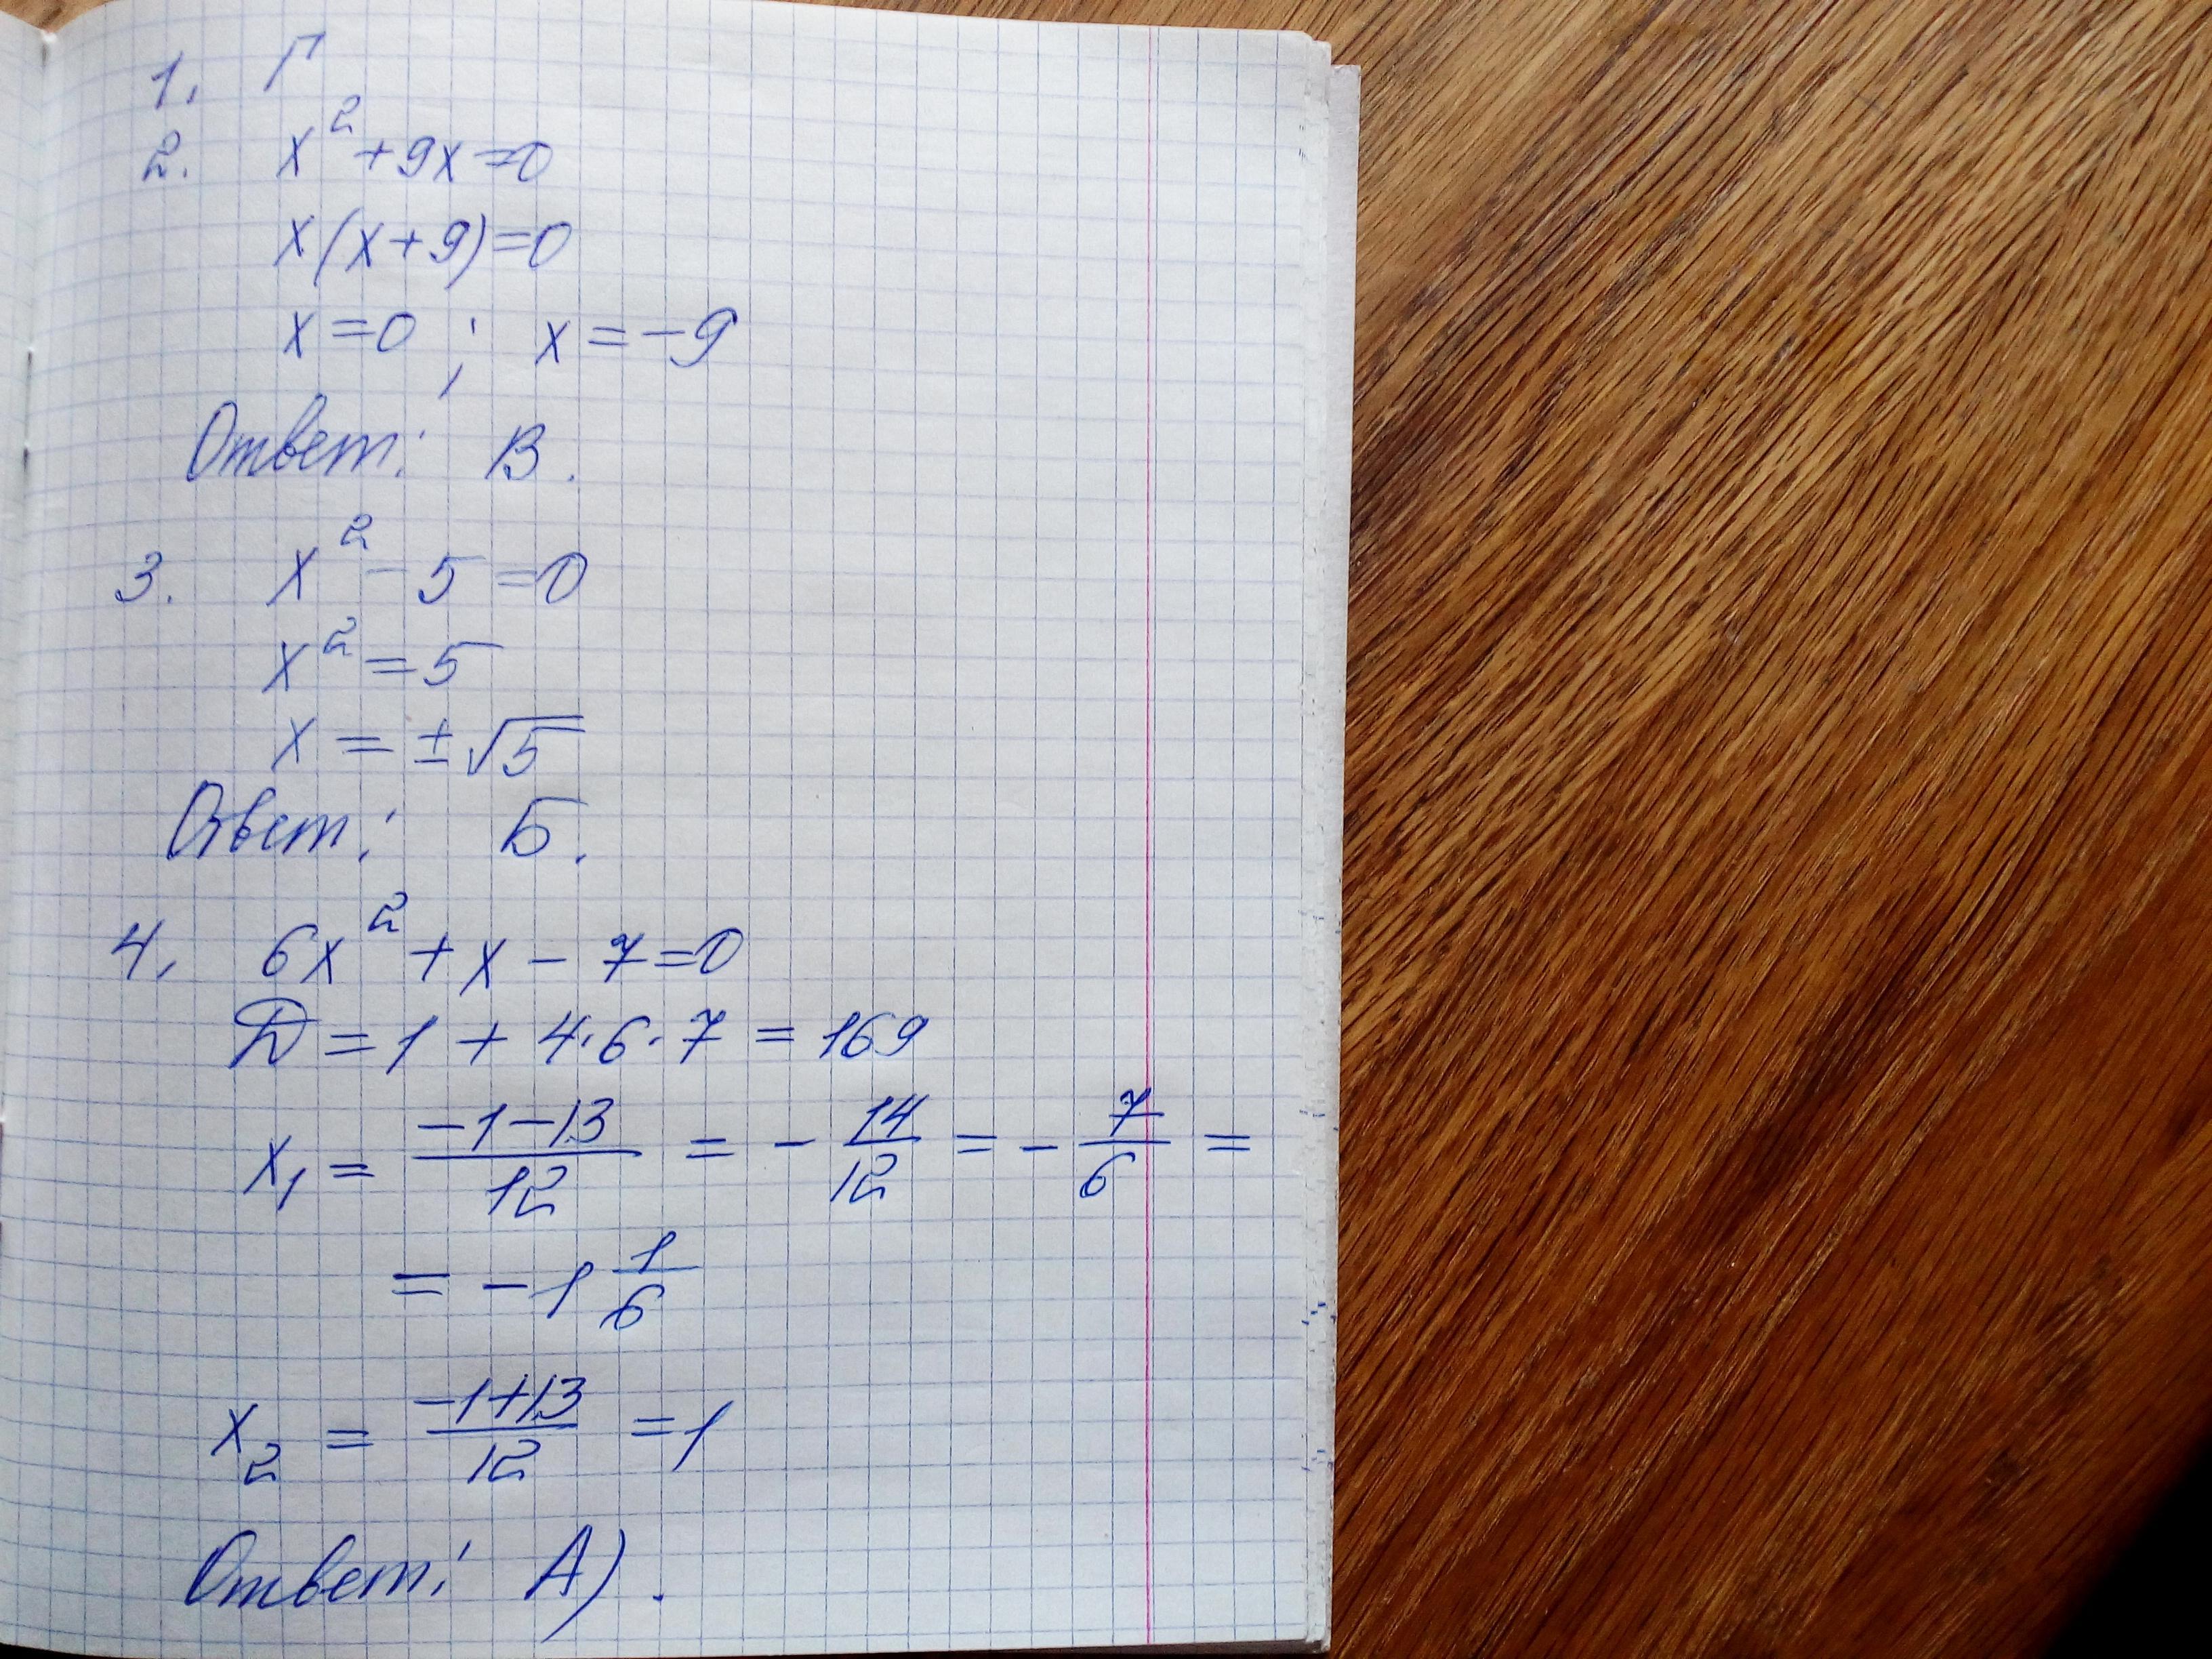 1. Г
2. x² + 9x = 0
x(x + 9) = 0
x = 0 ; x = -9
Ответ: В.
3. x² - 5 = 0
x² = 5
x = ±√5
Ответ: Б.
4. 6x² + x - 7 = 0
Д = 1 + 4·6·7 = 169
x₁ = (-1-13)/12 = - 14/12 = - 7/6 =
= -1 1/6
x₂ = (-1+13)/12 = 1
Ответ: А).